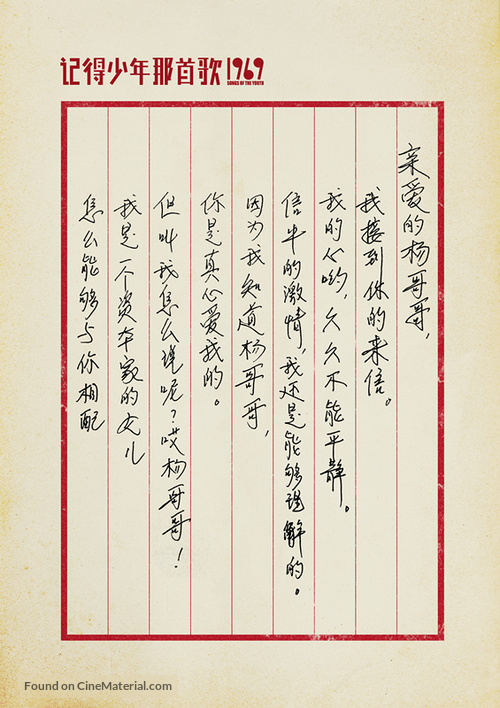 记得少年那首歌1969
SONGS OF THE YOUTH
亲爱的杨哥哥,
我接到你的来信。
我的心哟,久久不能平静。
信中的激情,我还是能够理解的。
因为我知道杨哥哥,
你是真心爱我的。
但叫我怎么说呢?哎杨哥哥!
我是一个资本家的女儿
怎么能够与你相配
Found on CineMaterial.com